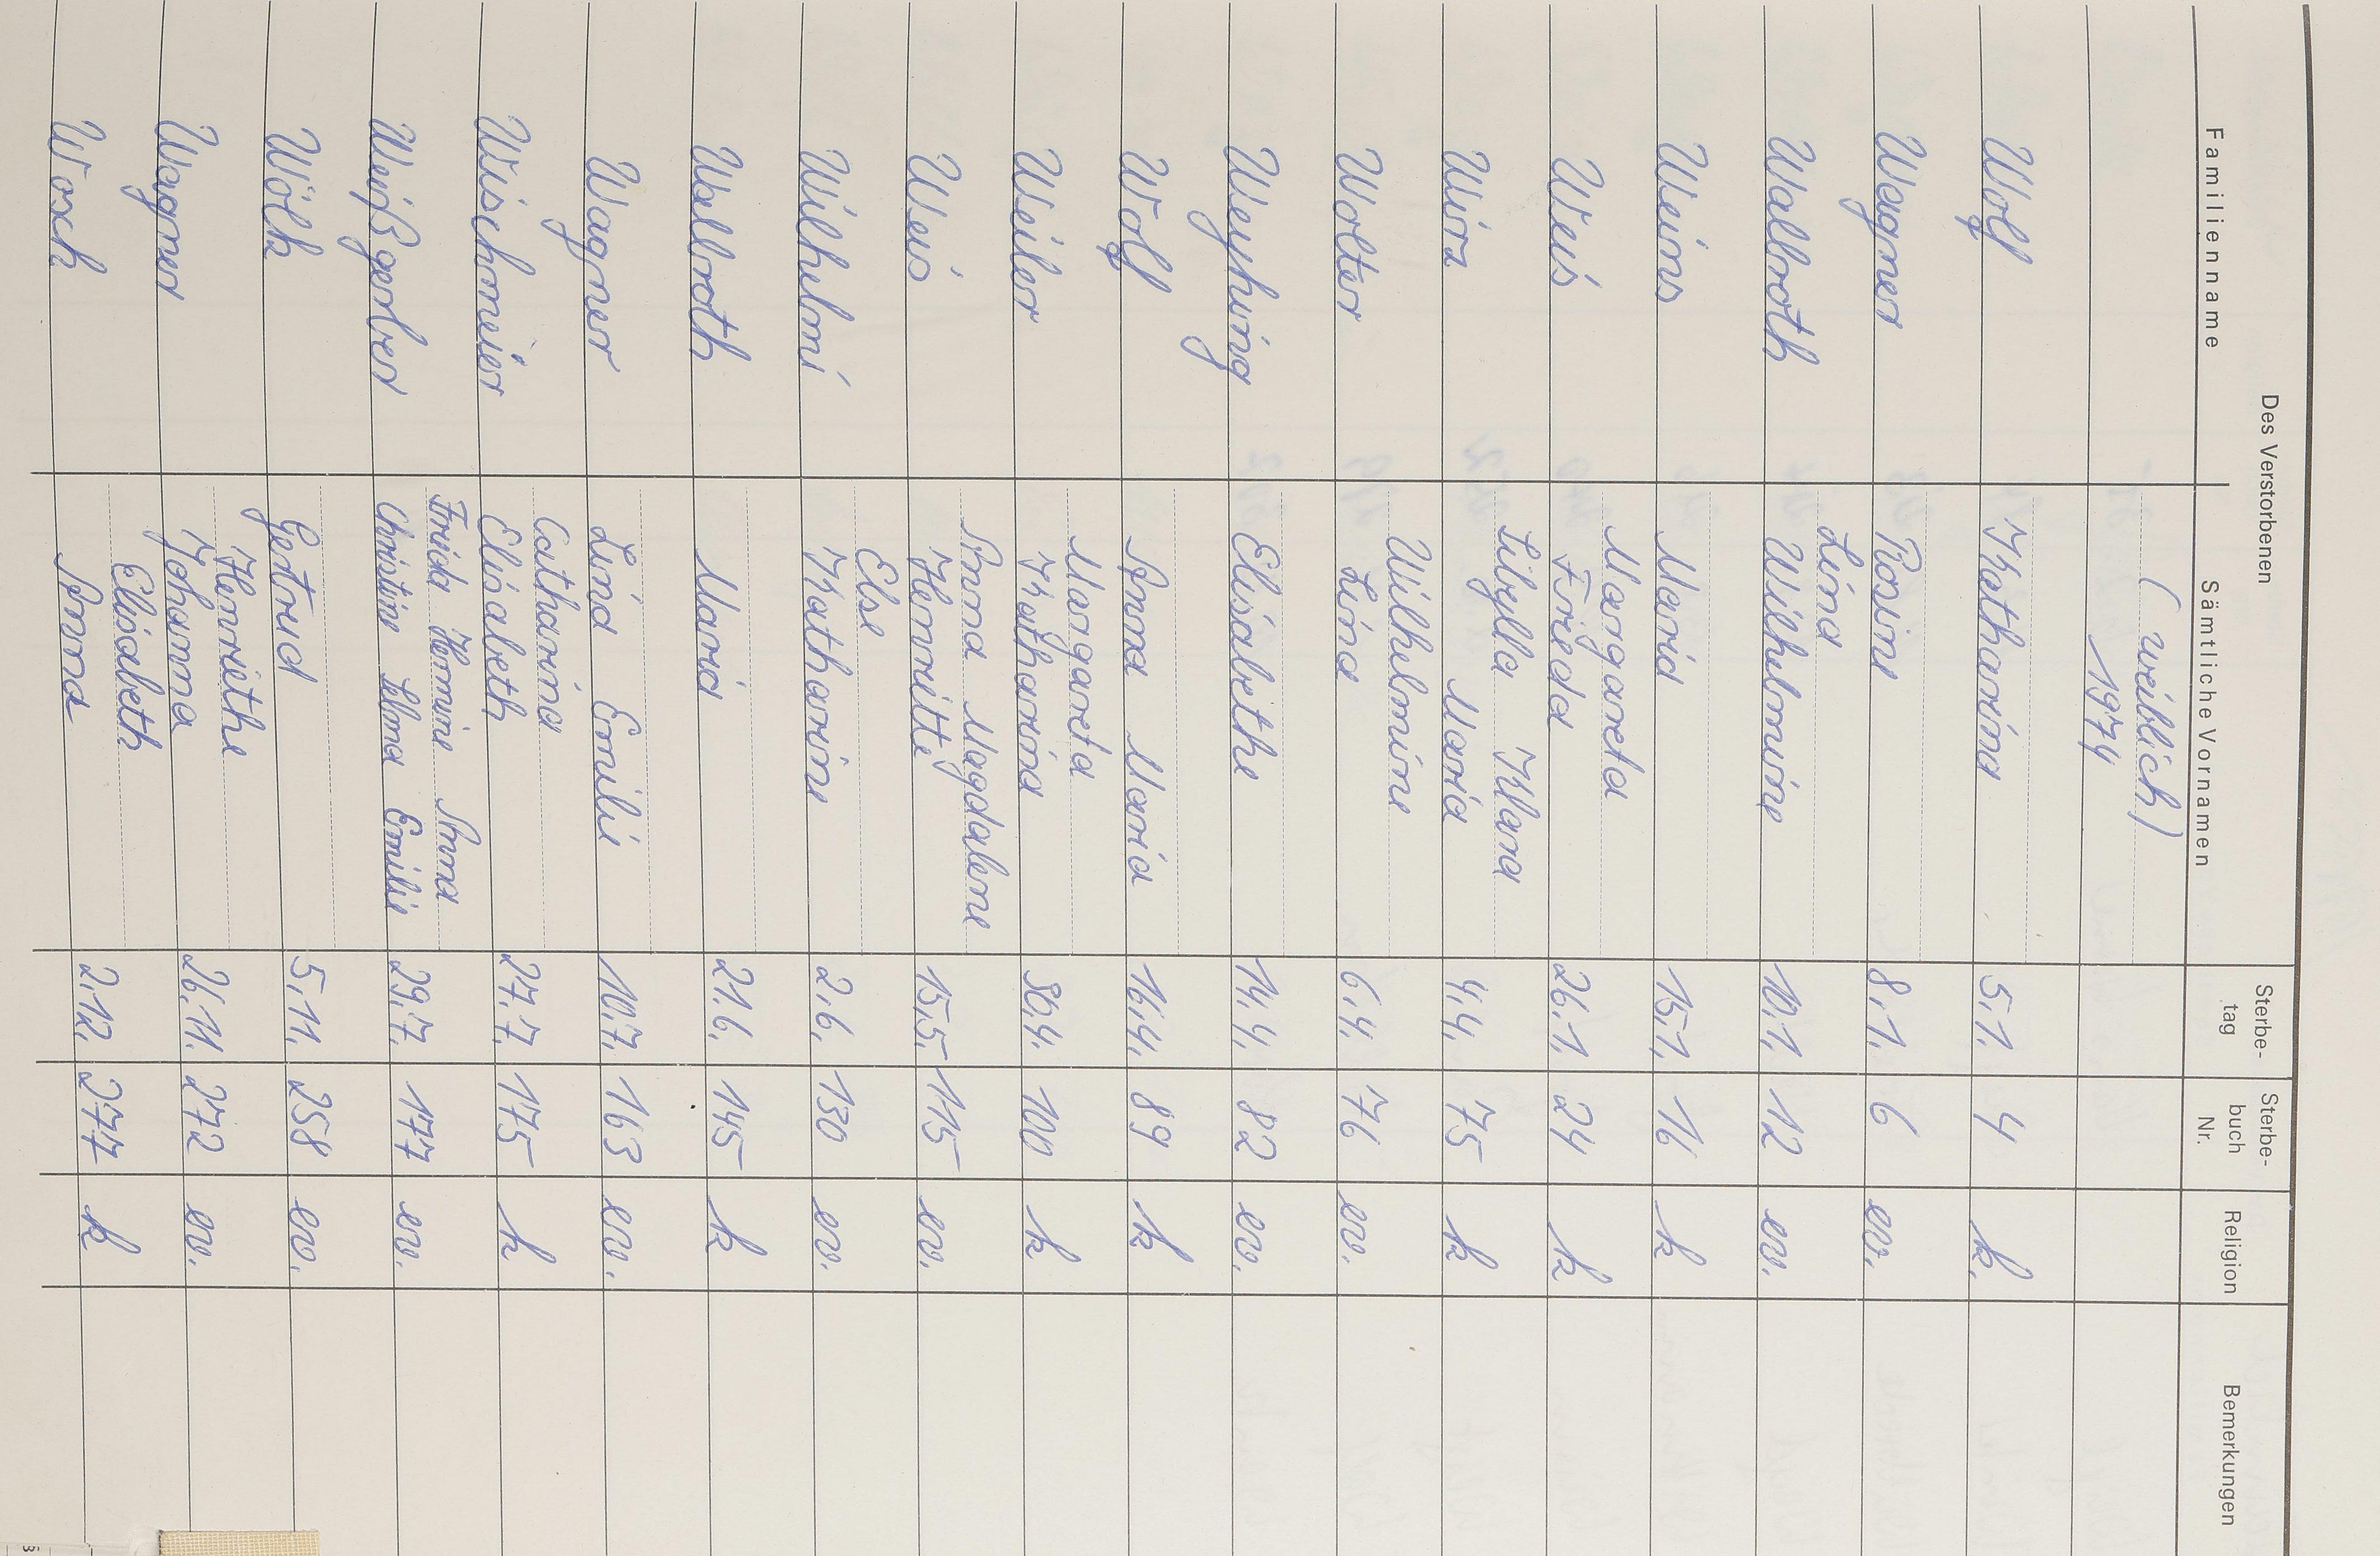 Des Verstorbenen
Sterbe-
tag
Sterbe-
buch
Nr.
Religion
Bemerkungen
Familienname
Sämtliche Vornamen
(weiblich)
1974
Wolf Katharina 5.1. 4 k.
Wagner Rosine 8.1. 6 ev.
Lina
Walbroth Wilhelmine 10.1. 12 ev.
Weins Maria 15.1. 16 k
Margareta
Weis Frieda 26.1. 24 k
Sibylla Klara
Wirz Maria 4.4. 75 k
Wilhelmine
Wolter Lina 6.4. 76 ev.
Weyhing Elisabethe 14.4. 82 ev.
Wolf Anna Maria 16.4. 89 k
Margareta
Weiler Katharina 30.4. 100 k
Anna Magdalene
Weis Henriette 15.5. 115 ev.
Else
Wilhelmi Katharine 2.6. 130 ev.
Wallroth Maria 21.6. 145 k
Wagner Lina Emilie 10.7. 163 ev.
Catharina
Wischmeier Elisabeth 27.7. 175 k
Frieda Hermine Anna
Weißgerber Christine Emilie 29.7. 177 ev.
Wölk Gertrud 5.11. 258 ev.
Henriethe
Wagner Johanna 26.11. 272 ev.
Elisabeth
Wosch Anna 2.12. 277 k